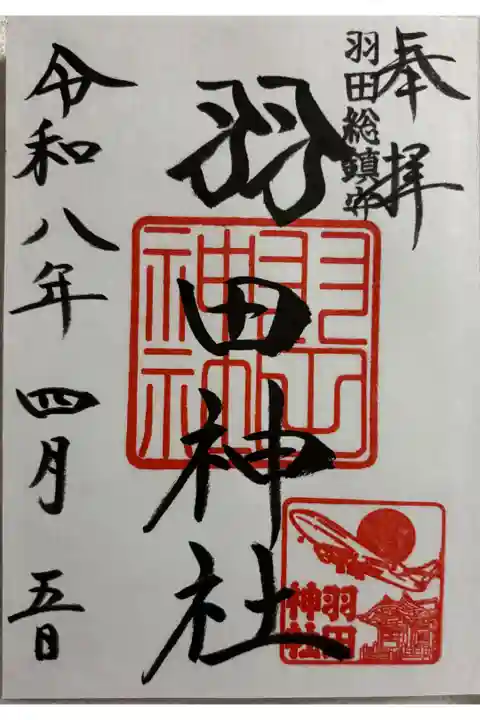 奉拝
羽田総鎮守
羽田神社
令和八年四月五日
羽田
神社